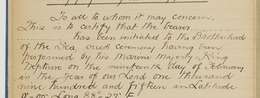 To all to whom it may concern.
This is to certify that the bearer
has been initiated to the Brotherhood
of the Sea, such ceremony having been
performed by his Marine Majesty King
Neptune on the nineteenth day of February
in the Year of our Lord one thousand
nine hundred and fifteen in Latitude
Long